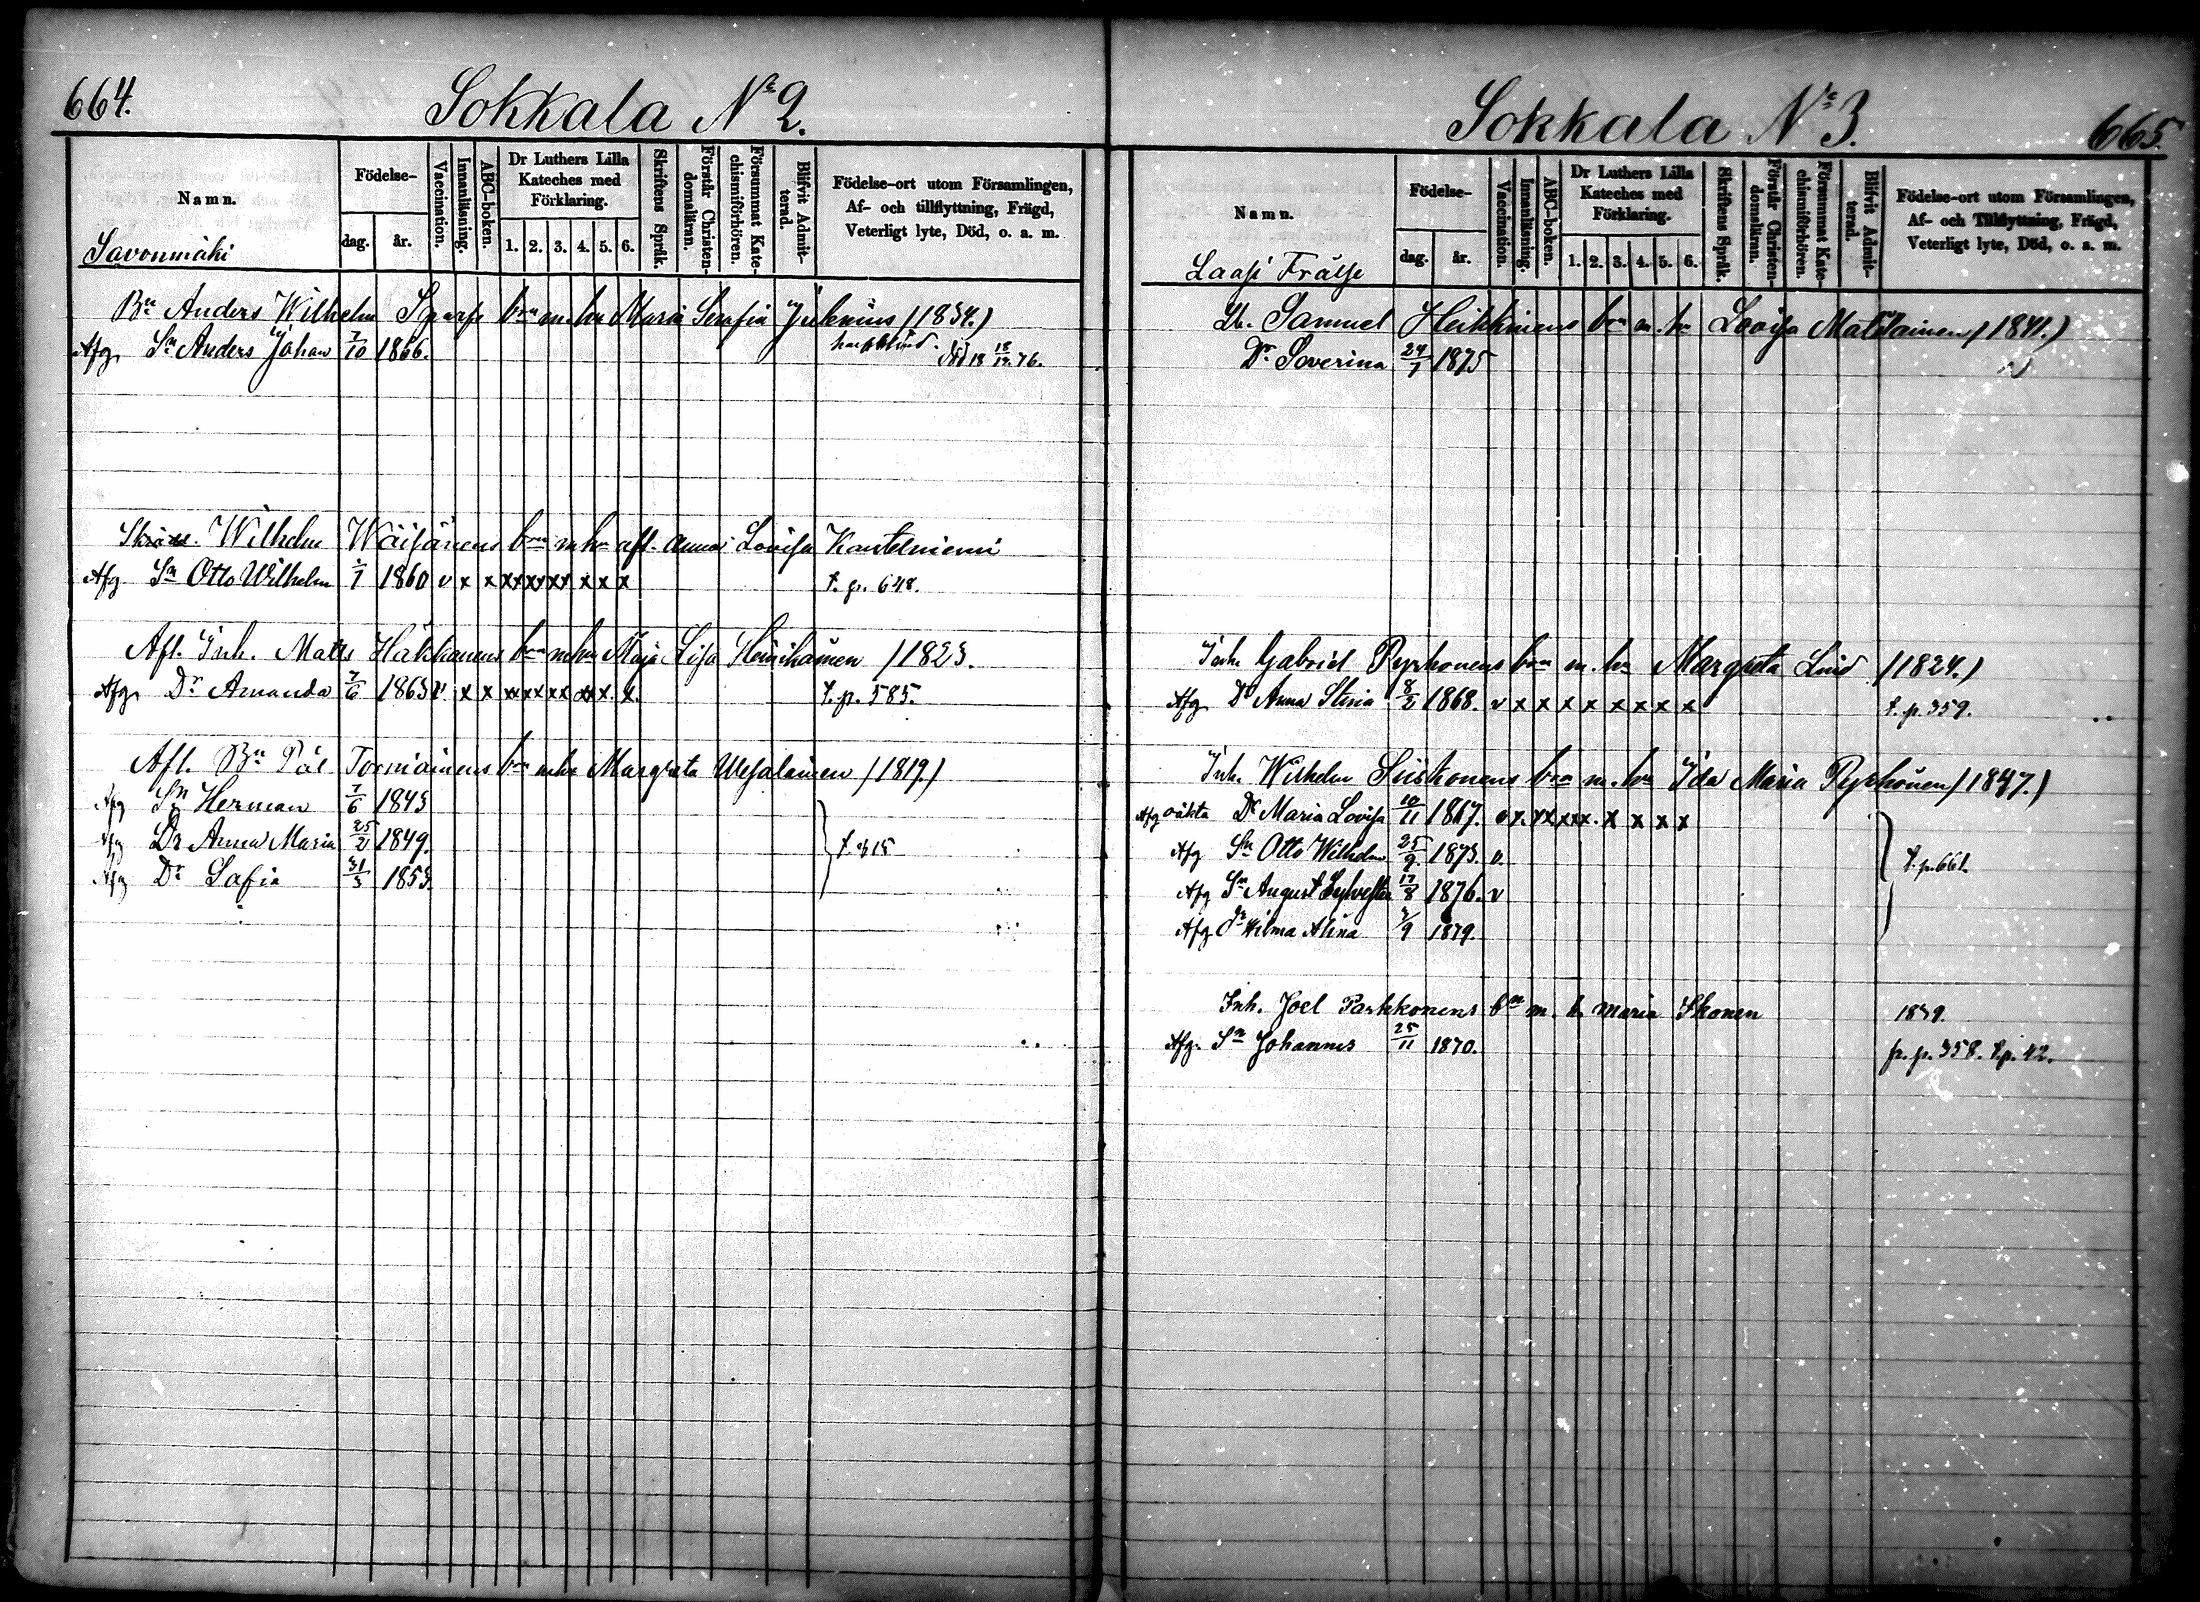 664.
Sokkala No 2.
Namn.
Födelse-
dag. år.
Vaccination.
Innanläsning.
ABC-boken.
Dr Luthers Lilla Kateches med Förklaring.
1. 2. 3. 4. 5. 6.
Skriftens Språk.
Förstår Christendomsläran.
Försummat Katechismiförhören.
Blifvit Admitterad.
Födelse-ort utom Församlingen,
Af- och tillflyttning, Frägd,
Veterligt lyte, Död, o. a. m.
Savonmäki
Bn Anders Wilhelm barn m. hu Maria Serafia (1834.)
Afg. Sn Anders Johan 7/10 1866. Död 76.
Wilhelm Wäisänens barn m hu afl. Anna Lovisa Kantelniemi
Afg Sn Otto Wilhelm 1860 v x x x x x x x x x t. p. 648.
Afl. Inh. Matts Häkkänens barn m hu Maja Lisa /1823.
Afg. Dr Amanda 7/6 1863 v x x x x x x x x x. t. p. 585.
Afl. Bn Pål Tormäinens barn m hu Margreta Wesalainen /1819.)
Afg Sn Herman 7/6 1843
Afg Dr Anna Maria 25/2 1849. t. 315
Afg Dr Sofia 31/3 1853
Sokkala No 3.
665.
Namn.
Födelse-
dag. år.
Vaccination.
Innanläsning.
ABC-boken.
Dr Luthers Lilla Kateches med Förklaring.
1. 2. 3. 4. 5. 6.
Skriftens Språk.
Förstår Christendomsläran.
Försummat Katechismiförhören.
Blifvit Admitterad.
Födelse-ort utom Församlingen,
Af- och Tillflyttning, Frägd,
Veterligt lyte, Död, o. a. m.
Laasi Frälse
Lb. Samuel Heikkinens barn m. hu Lovisa Matilainen (1841.)
Dr Soverina 24/7 1875
Inh. Gabriel Pyykönens barn m. hu Margreta Lind (1824.)
Afg. Dr Anna Stina 8/2 1868. v x x x x x x x x t. p. 359.
Inh. Wilhelm Siiskonens barn m. hu Ida Maria Pyykönen /1847.)
Afg oäkta Dr Maria Lovisa 10/11 1867. v x. x x x x x. x x x x
Afg Sn Otto Wilhelm 25/9. 1873. v. t. p. 661.
Afg Sn August Sylvester 17/8 1876. v
Afg. Dr Wilma Alina 1879.
Inh. Joel Parkkonens bn m. h. Maria Ikonen 1839.
Afg. Sn Johannes 25/11 1870. fr. p. 358. t. p. 42.